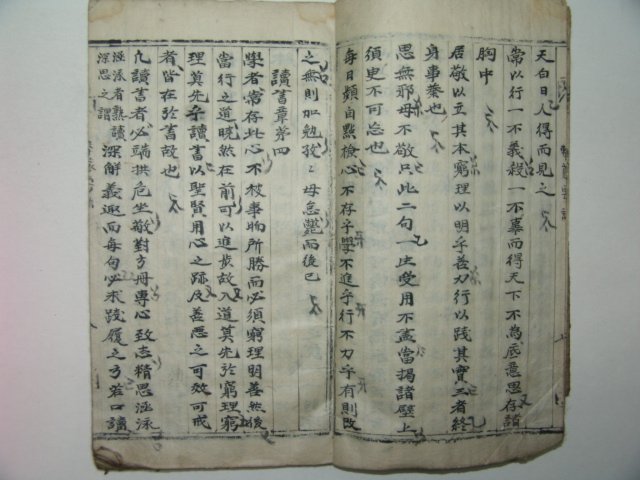 天白日人得而見之
常以行一不義殺一不辜而得天下不為底意思存諸
胸中
居敬以立其本窮理以明乎善力行以踐其實三者終
身事業也
思無邪毋不敬只此二句一生受用不盡當揭諸壁上
須臾不可忘也
每日頻自點檢心不存乎學不進乎行不力乎有則改
之無則加勉孜〻毋怠斃而後已
讀書章第四
學者常存此心不被事物所勝而必須窮理明善然後
當行之道曉然在前可以進步故入道莫先於窮理窮
理莫先乎讀書以聖賢用心之跡及善惡之可效可戒
者皆在於書故也
凡讀書者必端拱危坐敬對方冊專心致志精思涵泳
涵泳者熟讀
深思之謂
深解義趣而每句必求踐履之方若口讀